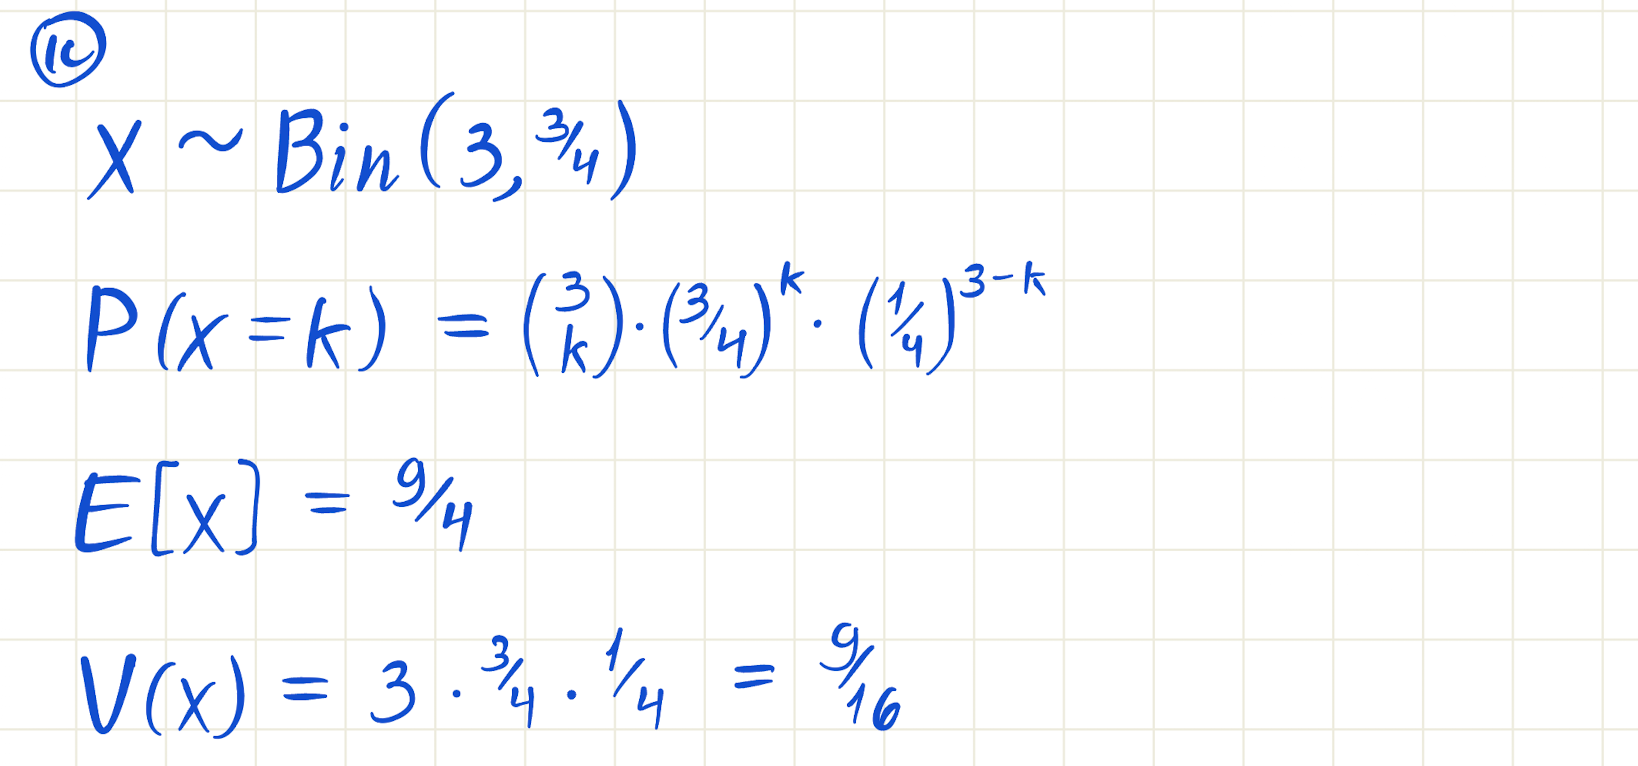 1c
X ~ Bin(3, 3/4)
P(x=k) = (3 k) · (3/4)^k · (1/4)^3-k
E[x] = 9/4
V(x) = 3 · 3/4 · 1/4 = 9/16